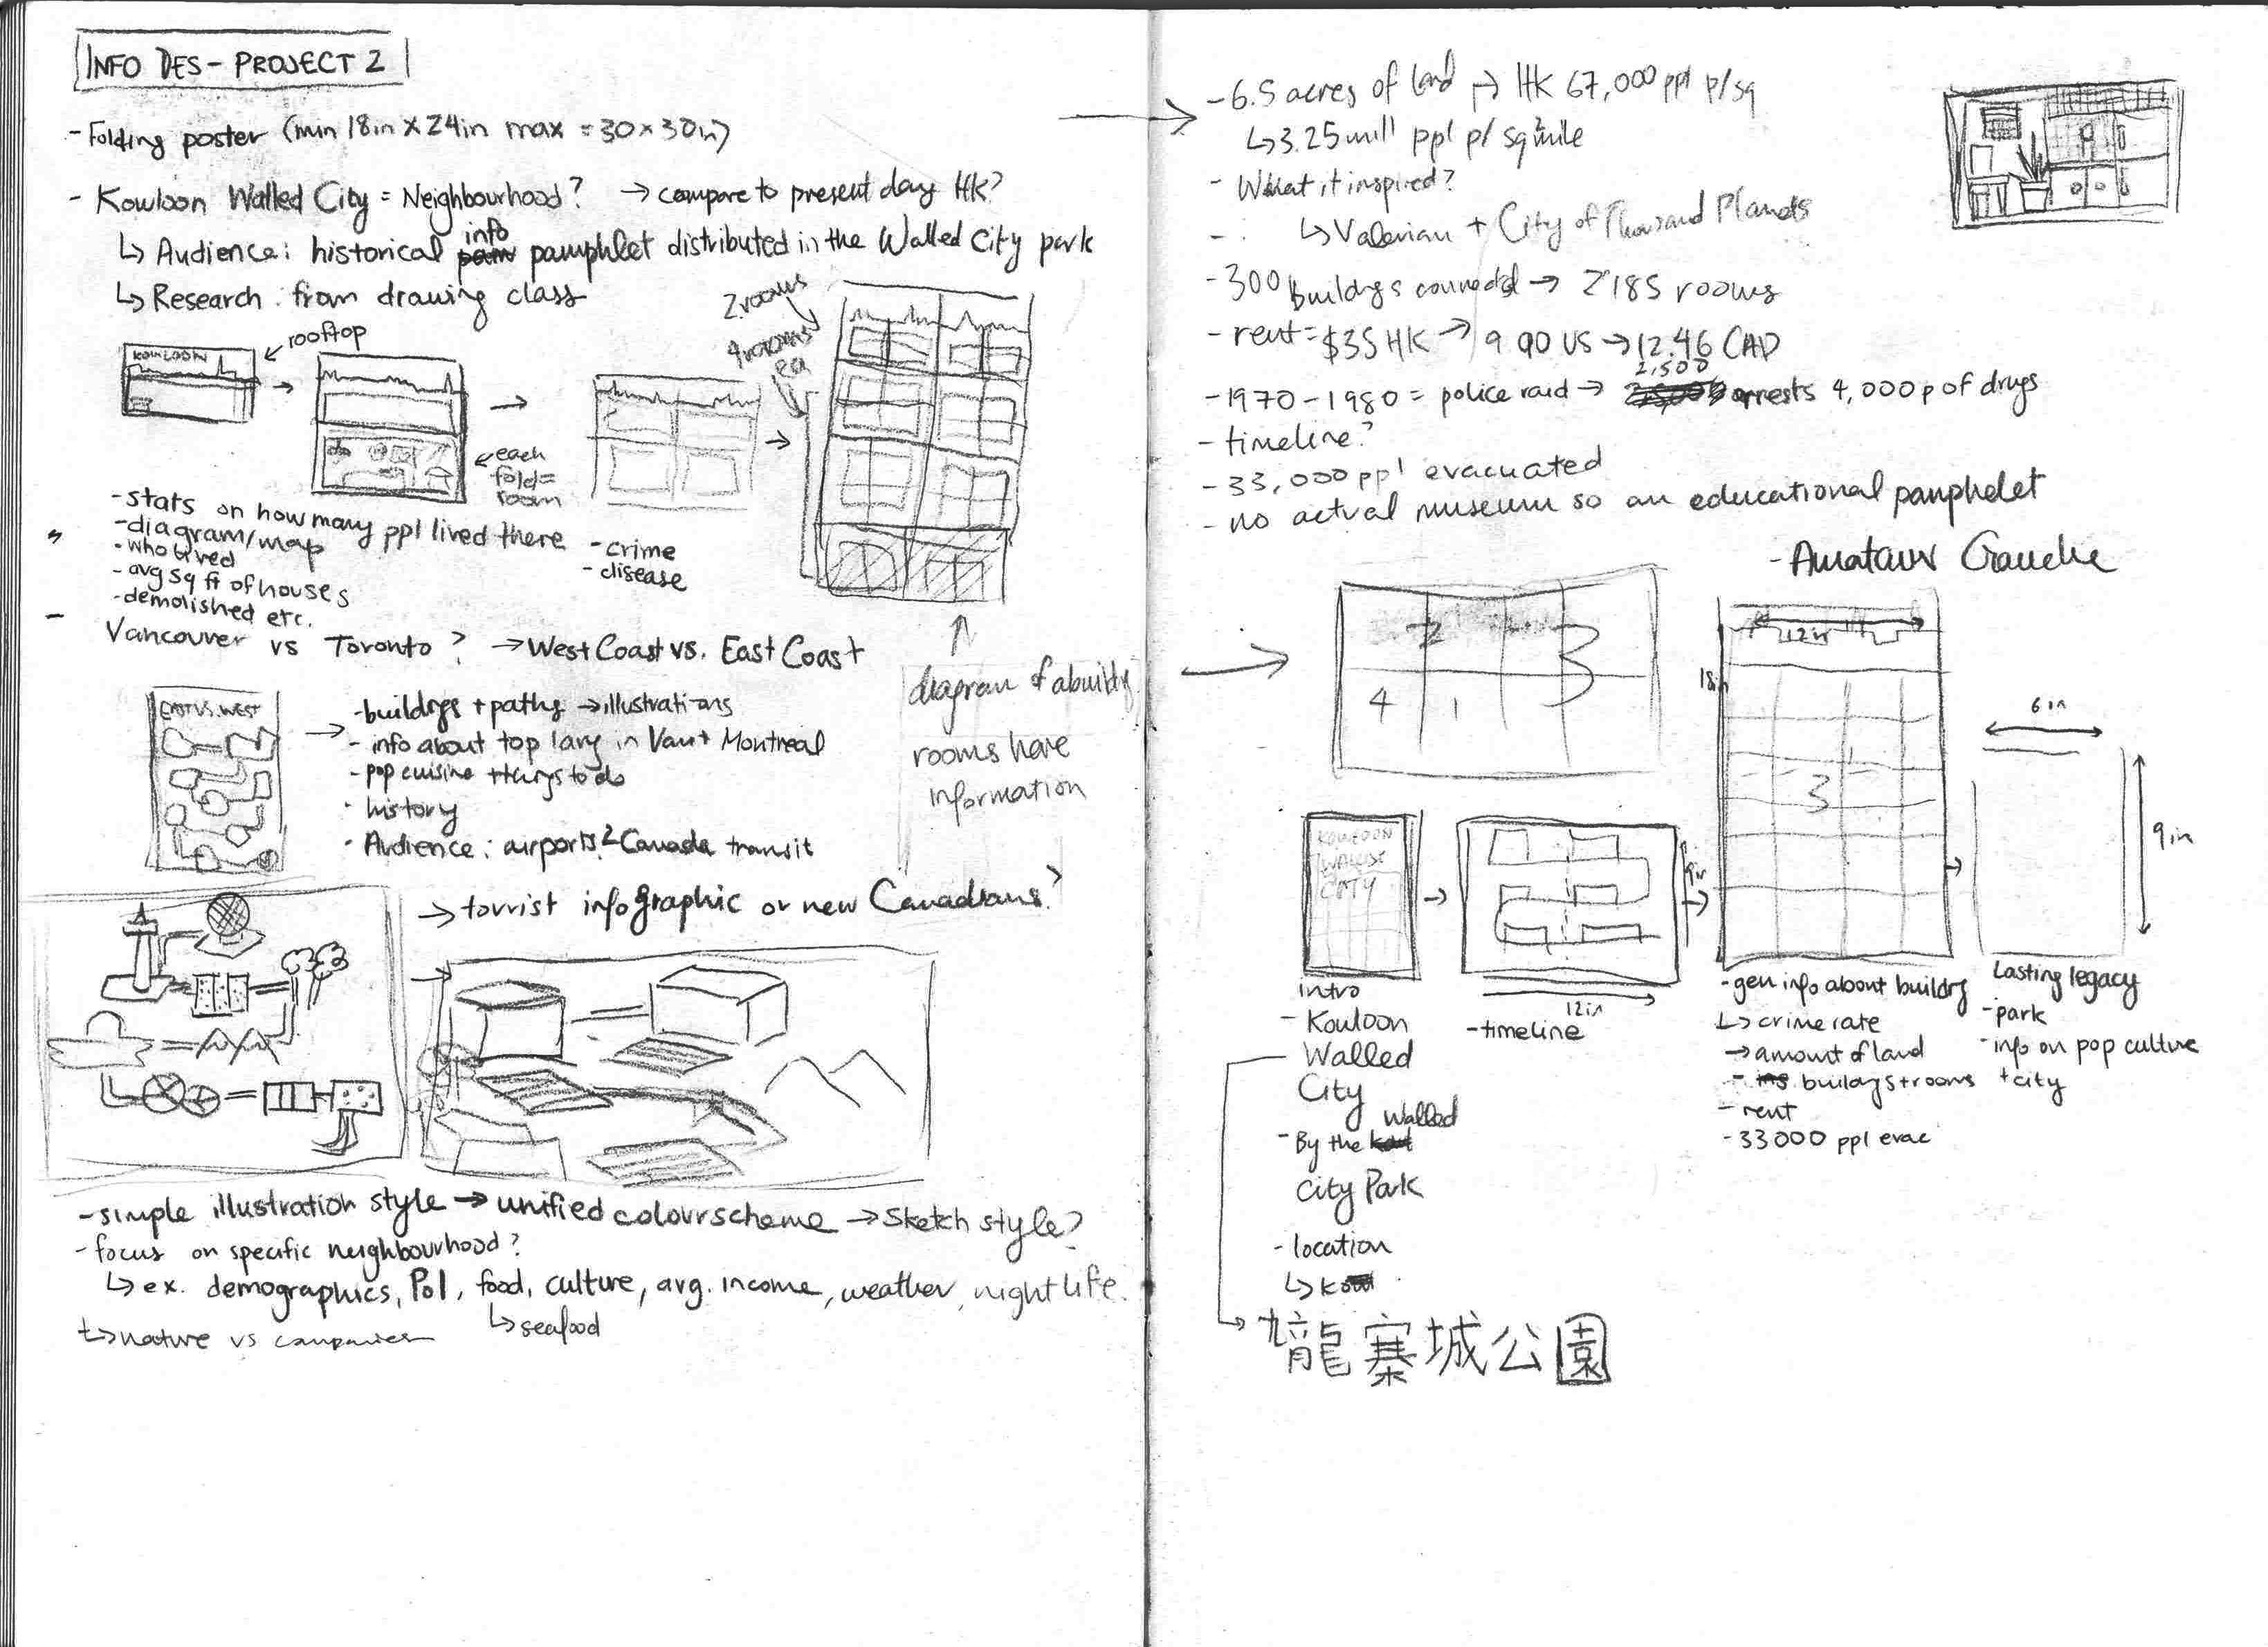 INFO DES - PROJECT 2
- Folding poster (min 18in X 24in max = 30 x 30in)
- Kowloon Walled City = Neighbourhood? → compare to present day HK?
↳ Audience: historical info pamphlet distributed in the Walled City park
↳ Research: from drawing class
KOWLOON
← rooftop
← each fold = room
2 rooms
4 rooms ea
- stats on how many ppl lived there
- diagram/map
- who lived
- avg sq ft of houses
- demolished etc.
- crime
- disease
- Vancouver vs Toronto? → West Coast vs. East Coast
diagram of
rooms have
information
EAST VS. WEST
- buildngs + paths → illustrations
- info about top in Van + Montreal
- pop cuisine + things to do
- history
- Audience: airports? Canada transit
→ tourist infographic or new Canadians?
- simple illustration style → unified colour scheme → Sketch style?
- focus on specific neighbourhood?
↳ ex. demographics, PoI, food, culture, avg. income, weather, night life.
↳ seafood
↳ nature vs companies
- 6.5 acres of land → HK 67,000 ppl p/sq
↳ 3.25 mill ppl p/ sq mile
- What it inspired?
↳ Valerian + City of Thousand Planets
- 300 buildngs connected → 2'185 rooms
- rent = $35 HK → 9.90 US → 12.46 CAD
- 1970 - 1980 = police raid → 2,500 arrests 4,000 p of drugs
- timeline?
- 33,000 ppl evacuated
- no actual museum so an educational pamphelet
- Amataur Gauche
2
3
4
1
12in
18in
3
6 in
9 in
KOWLOON
WALLED
CITY
9in
12in
intro
- Kouloon
Walled
City
- By the Walled
City Park
- location
九龍寨城公園
- timeline
- gen info about buildng
↳ crime rate
→ amount of land
- buildngs + rooms
- rent
- 33000 ppl evac
Lasting legacy
- park
- info on pop culture
+ city